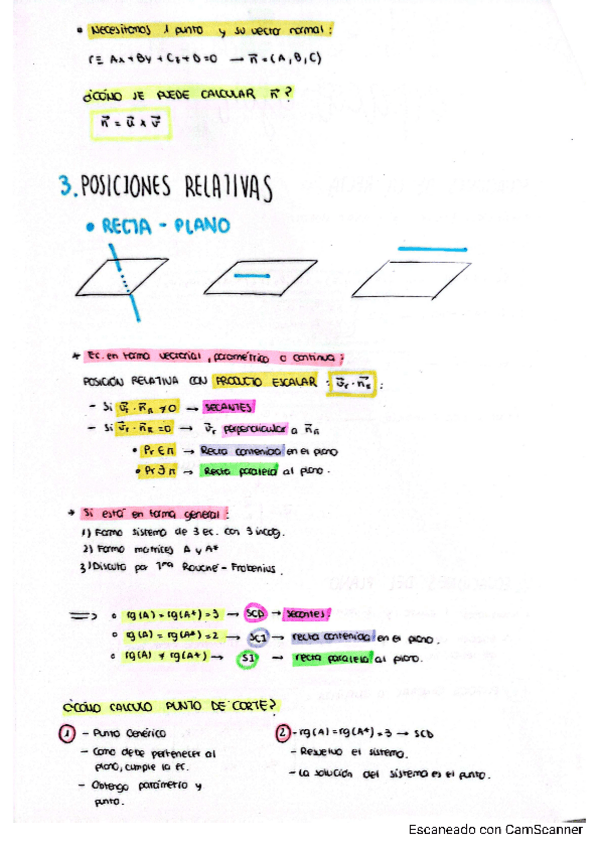 • Necesitamos 1 punto y su vector normal:
π ≡ Ax + By + Cz + D = 0 → n⃗ = (A, B, C)
¿CÓMO SE PUEDE CALCULAR n⃗?
n⃗ = u⃗ x v⃗
3. POSICIONES RELATIVAS
• RECTA - PLANO
* Ec. en forma vectorial, paramétrica o continua:
POSICIÓN RELATIVA CON PRODUCTO ESCALAR: v⃗r · n⃗π:
- Si v⃗r · n⃗π ≠ 0 → SECANTES
- Si v⃗r · n⃗π = 0 → v⃗r perpendicular a n⃗π
• Pr ∈ π → Recta contenida en el plano
• Pr ∌ π → Recta paralela al plano.
→ Si está en forma general:
1) Formo sistema de 3 ec. con 3 incóg.
2) Formo matrices A y A*
3) Discuto por Tma Rouché - Frobenius.
⇒ ∘ rg(A) = rg(A*) = 3 → SCD → secantes.
∘ rg(A) = rg(A*) = 2 → SCI → recta contenida en el plano.
∘ rg(A) ≠ rg(A*) → SI → recta paralela al plano.
¿CÓMO CALCULO PUNTO DE CORTE?
1 - Punto Genérico
- Como debe pertenecer al
plano, cumple la ec.
- Obtengo parámetro y
punto.
2 - rg(A) = rg(A*) = 3 → SCD
- Resuelvo el sistema.
- La solución del sistema es el punto.
Escaneado con CamScanner